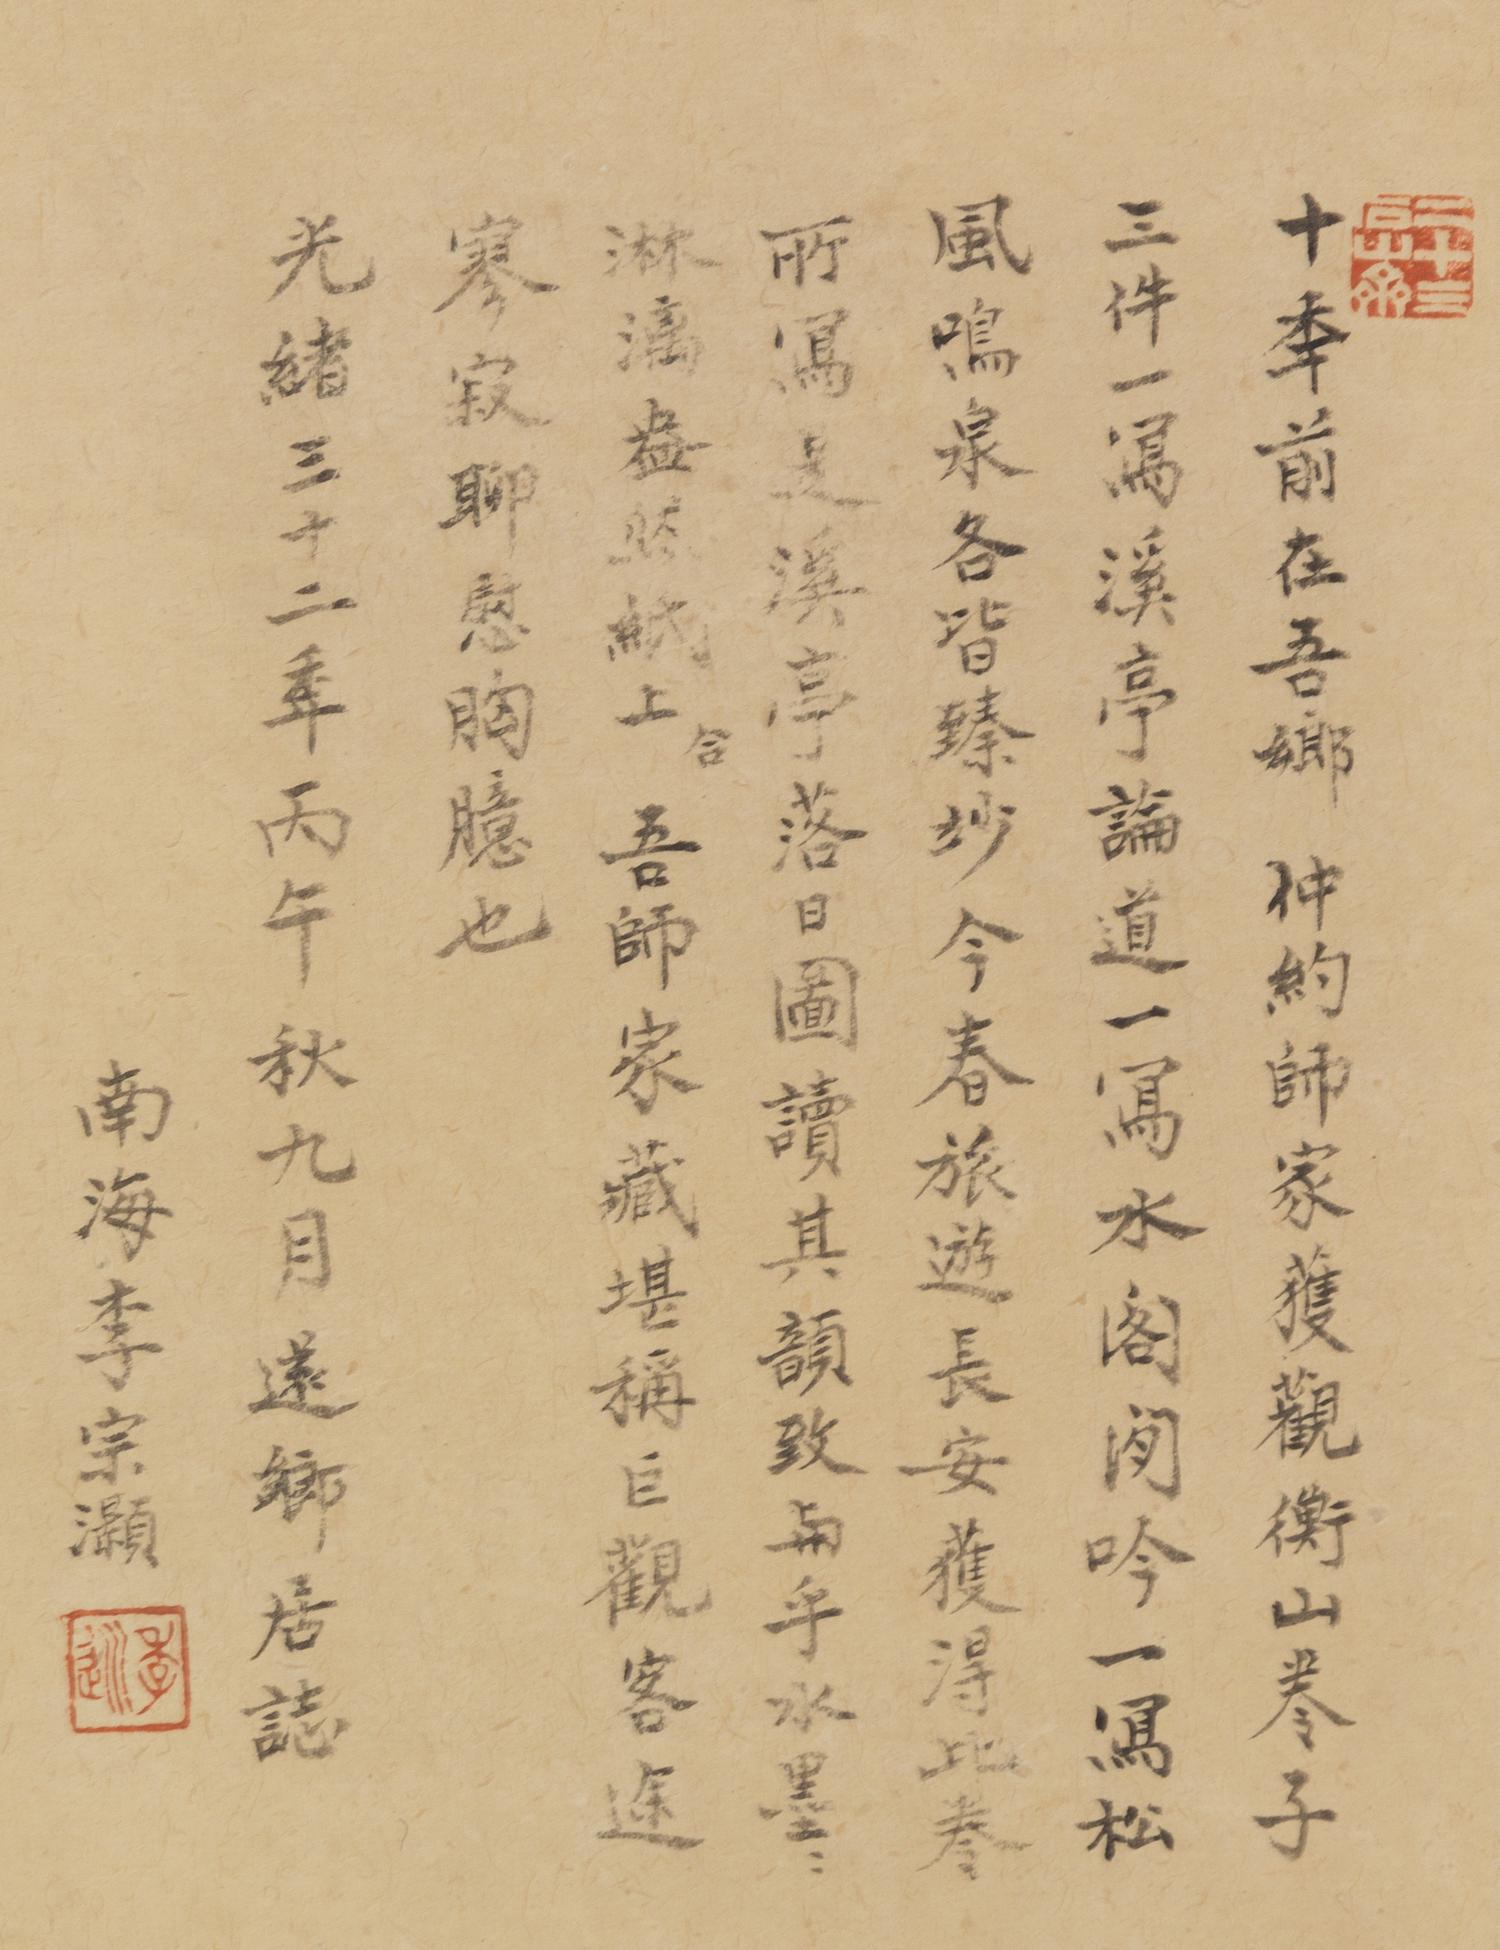 十季前在吾鄉仲約師家獲觀衡山卷子
三件一寫溪亭論道一寫水閣閒吟一寫松
風鳴泉各皆臻妙今春旅遊長安獲淂此卷
所寫是溪亭落日圖讀其韻致與乎水墨ミ
淋漓盎然紙上合吾師家藏堪稱巨觀客途
寥寂聊慰胸臆也
光緒三十二年丙午秋九月還鄉居誌
南海李宗灝